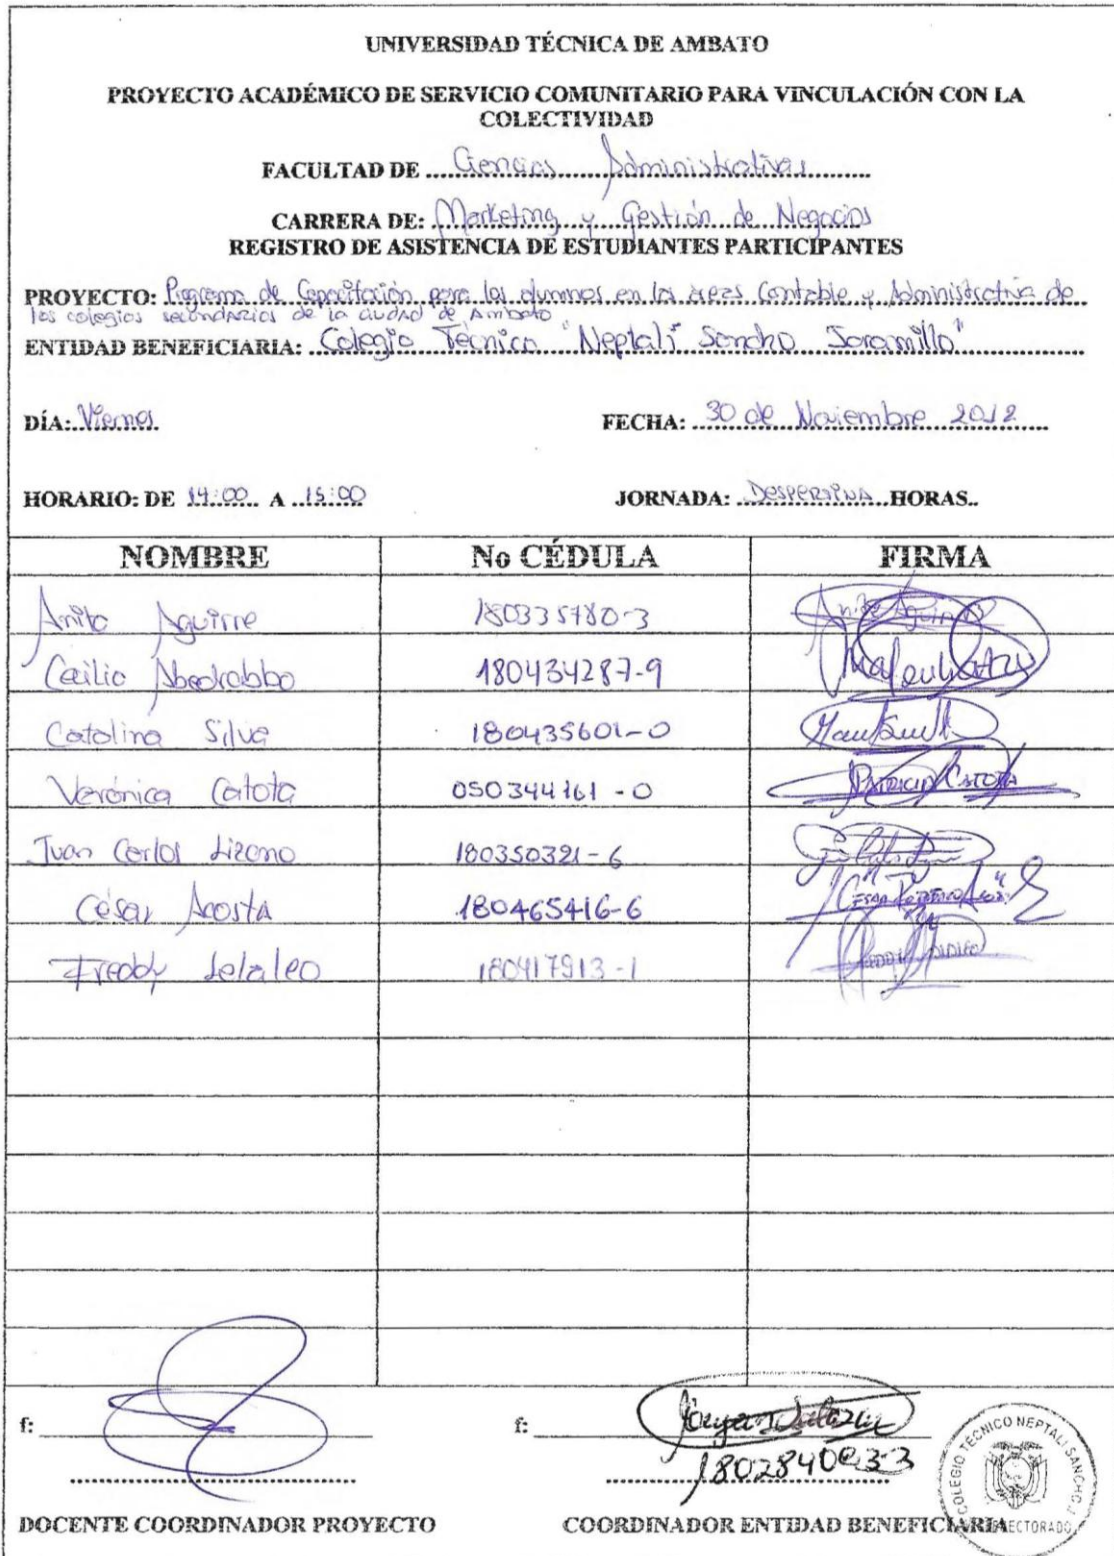 UNIVERSIDAD TÉCNICA DE AMBATO
PROYECTO ACADÉMICO DE SERVICIO COMUNITARIO PARA VINCULACIÓN CON LA
COLECTIVIDAD
FACULTAD DE Ciencias Administrativas
CARRERA DE: Marketing y Gestión de Negocios
REGISTRO DE ASISTENCIA DE ESTUDIANTES PARTICIPANTES
PROYECTO: Programa de Capacitación para los alumnos en las áreas Contable y Administrativa de
los colegios secundarios de la ciudad de Ambato
ENTIDAD BENEFICIARIA: Colegio Técnico "Neptalí Sancho Jaramillo"
DÍA: Viernes FECHA: 30 de Noviembre 2012
HORARIO: DE 14:00 A 15:00 JORNADA: Despertina HORAS..
NOMBRE No CÉDULA FIRMA
Anita Aguirre 180335780-3 Anita Aguirre
Cecilia Abedrabbo 180434287-9
Catalina Silva 180435601-0
Verónica Catota 050344161-0 Patricia Catota
Juan Carlos Lizano 180350321-6
César Acosta 180465416-6 César
Freddy Lelaleo 180417913-1 Freddy
f: f:
1802840833
DOCENTE COORDINADOR PROYECTO COORDINADOR ENTIDAD BENEFICIARIA
COLEGIO TÉCNICO NEPTALI SANCHO J